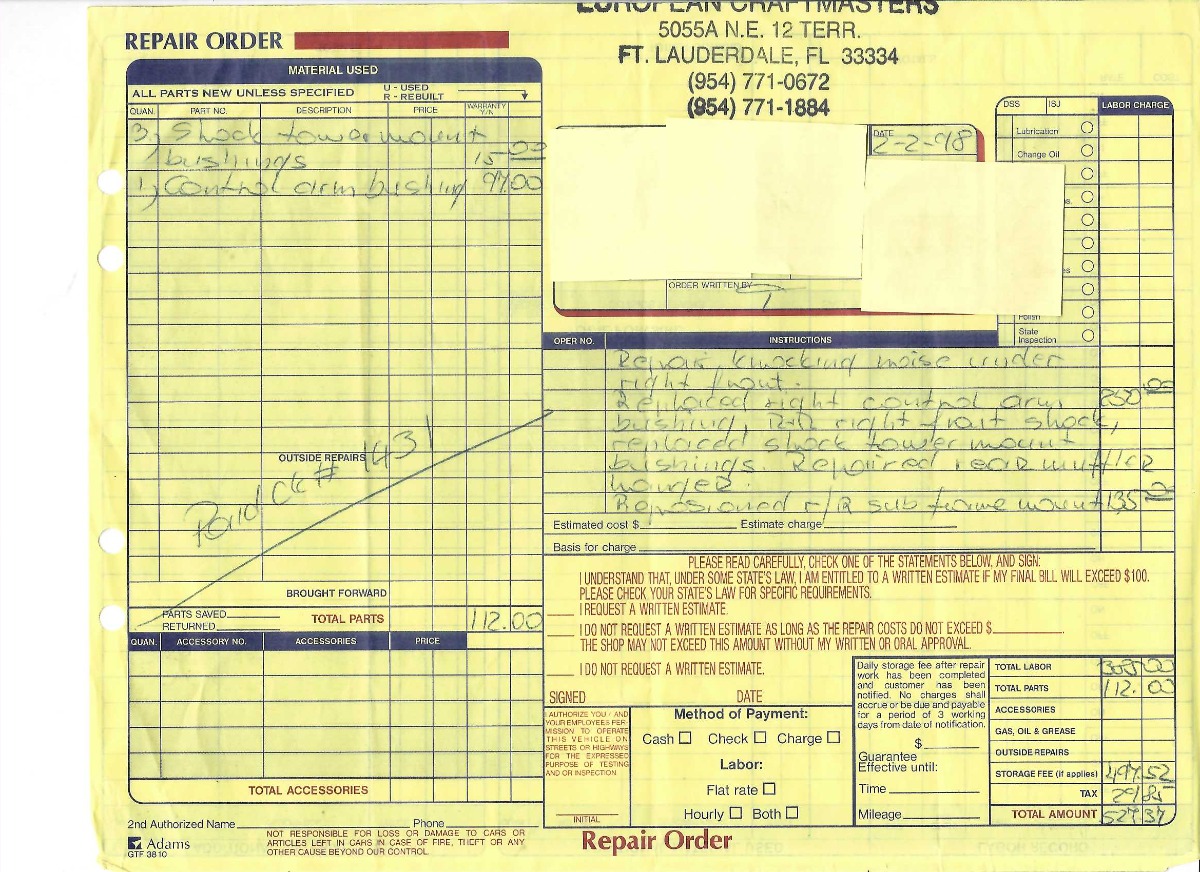 EUROPEAN CRAFTMASTERS
5055A N.E. 12 TERR.
FT. LAUDERDALE, FL 33334
(954) 771-0672
(954) 771-1884
REPAIR ORDER
MATERIAL USED
ALL PARTS NEW UNLESS SPECIFIED U - USED R - REBUILT
QUAN. PART NO. DESCRIPTION PRICE WARRANTY Y/N
3) Shock tower mount
bushings 15.00
1) Control arm bushing 97.00
OUTSIDE REPAIRS
Paid ck# 1431
BROUGHT FORWARD
PARTS SAVED
RETURNED
TOTAL PARTS 112.00
QUAN. ACCESSORY NO. ACCESSORIES PRICE
TOTAL ACCESSORIES
2nd Authorized Name Phone
Adams
GTF 3810
NOT RESPONSIBLE FOR LOSS OR DAMAGE TO CARS OR
ARTICLES LEFT IN CARS IN CASE OF FIRE, THEFT OR ANY
OTHER CAUSE BEYOND OUR CONTROL.
DATE
2-2-98
ORDER WRITTEN BY
DSS ISJ LABOR CHARGE
Lubrication
Change Oil
Polish
State
Inspection
OPER NO. INSTRUCTIONS
Repair knocking noise under
right front.
Replaced right control arm 250.00
bushing, R&R right front shock,
replaced shock tower mount
bushings. Repaired rear muffler
hanger.
Repositioned r/R sub frame mount 135.00
Estimated cost $ Estimate charge
Basis for charge
PLEASE READ CAREFULLY, CHECK ONE OF THE STATEMENTS BELOW, AND SIGN:
I UNDERSTAND THAT, UNDER SOME STATE'S LAW, I AM ENTITLED TO A WRITTEN ESTIMATE IF MY FINAL BILL WILL EXCEED $100.
PLEASE CHECK YOUR STATE'S LAW FOR SPECIFIC REQUIREMENTS.
I REQUEST A WRITTEN ESTIMATE.
I DO NOT REQUEST A WRITTEN ESTIMATE AS LONG AS THE REPAIR COSTS DO NOT EXCEED $
THE SHOP MAY NOT EXCEED THIS AMOUNT WITHOUT MY WRITTEN OR ORAL APPROVAL.
I DO NOT REQUEST A WRITTEN ESTIMATE.
SIGNED DATE
I AUTHORIZE YOU / AND
YOUR EMPLOYEES PER-
MISSION TO OPERATE
THIS VEHICLE ON
STREETS OR HIGHWAYS
FOR THE EXPRESSED
PURPOSE OF TESTING
AND OR INSPECTION.
INITIAL
Method of Payment:
Cash Check Charge
Labor:
Flat rate
Hourly Both
Daily storage fee after repair
work has been completed
and customer has been
notified. No charges shall
accrue or be due and payable
for a period of 3 working
days from date of notification.
$
Guarantee
Effective until:
Time
Mileage
TOTAL LABOR 385.00
TOTAL PARTS 112.00
ACCESSORIES
GAS, OIL & GREASE
OUTSIDE REPAIRS
STORAGE FEE (if applies) 497.52
TAX 29.85
TOTAL AMOUNT 527.37
Repair Order